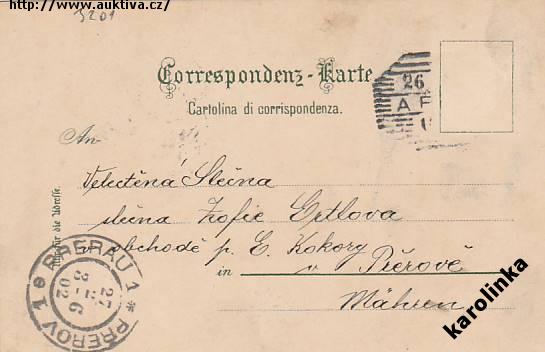 http://www.auktiva.cz/
3201
Correspondenz-Karte
Cartolina di corrispondenza.
26
A P
An
Velectěná Slečna
slečna Žofie Ertlova
v obchodě p. E. Kokory
in v Přerově
Mähren
Nur für die Adresse.
PRERAU 1 * PŘEROV 1
27
3–6
02
karolinka